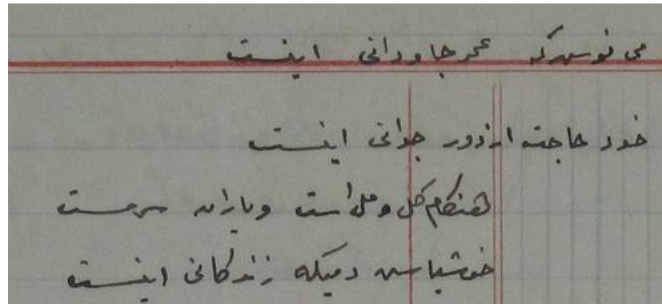 می نوش که عمر جاودانی اینست
خود حاجت از دور جوانی اینست
هنگام گل و مل است و یاران سرمست
خوشباش دمیکه زندگانی اینست